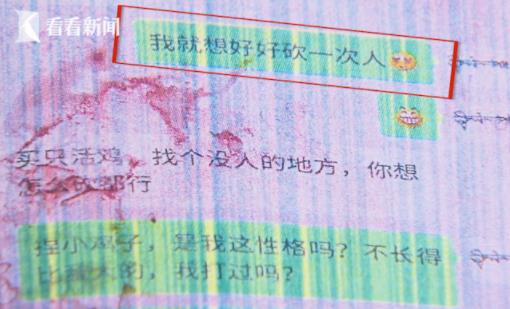 看看新闻
我就想好好砍一次人
买只活鸡，找个没人的地方，你想
怎么砍都行
捏小鸡子，是我这性格吗？不长得
比我大的，我打过吗？